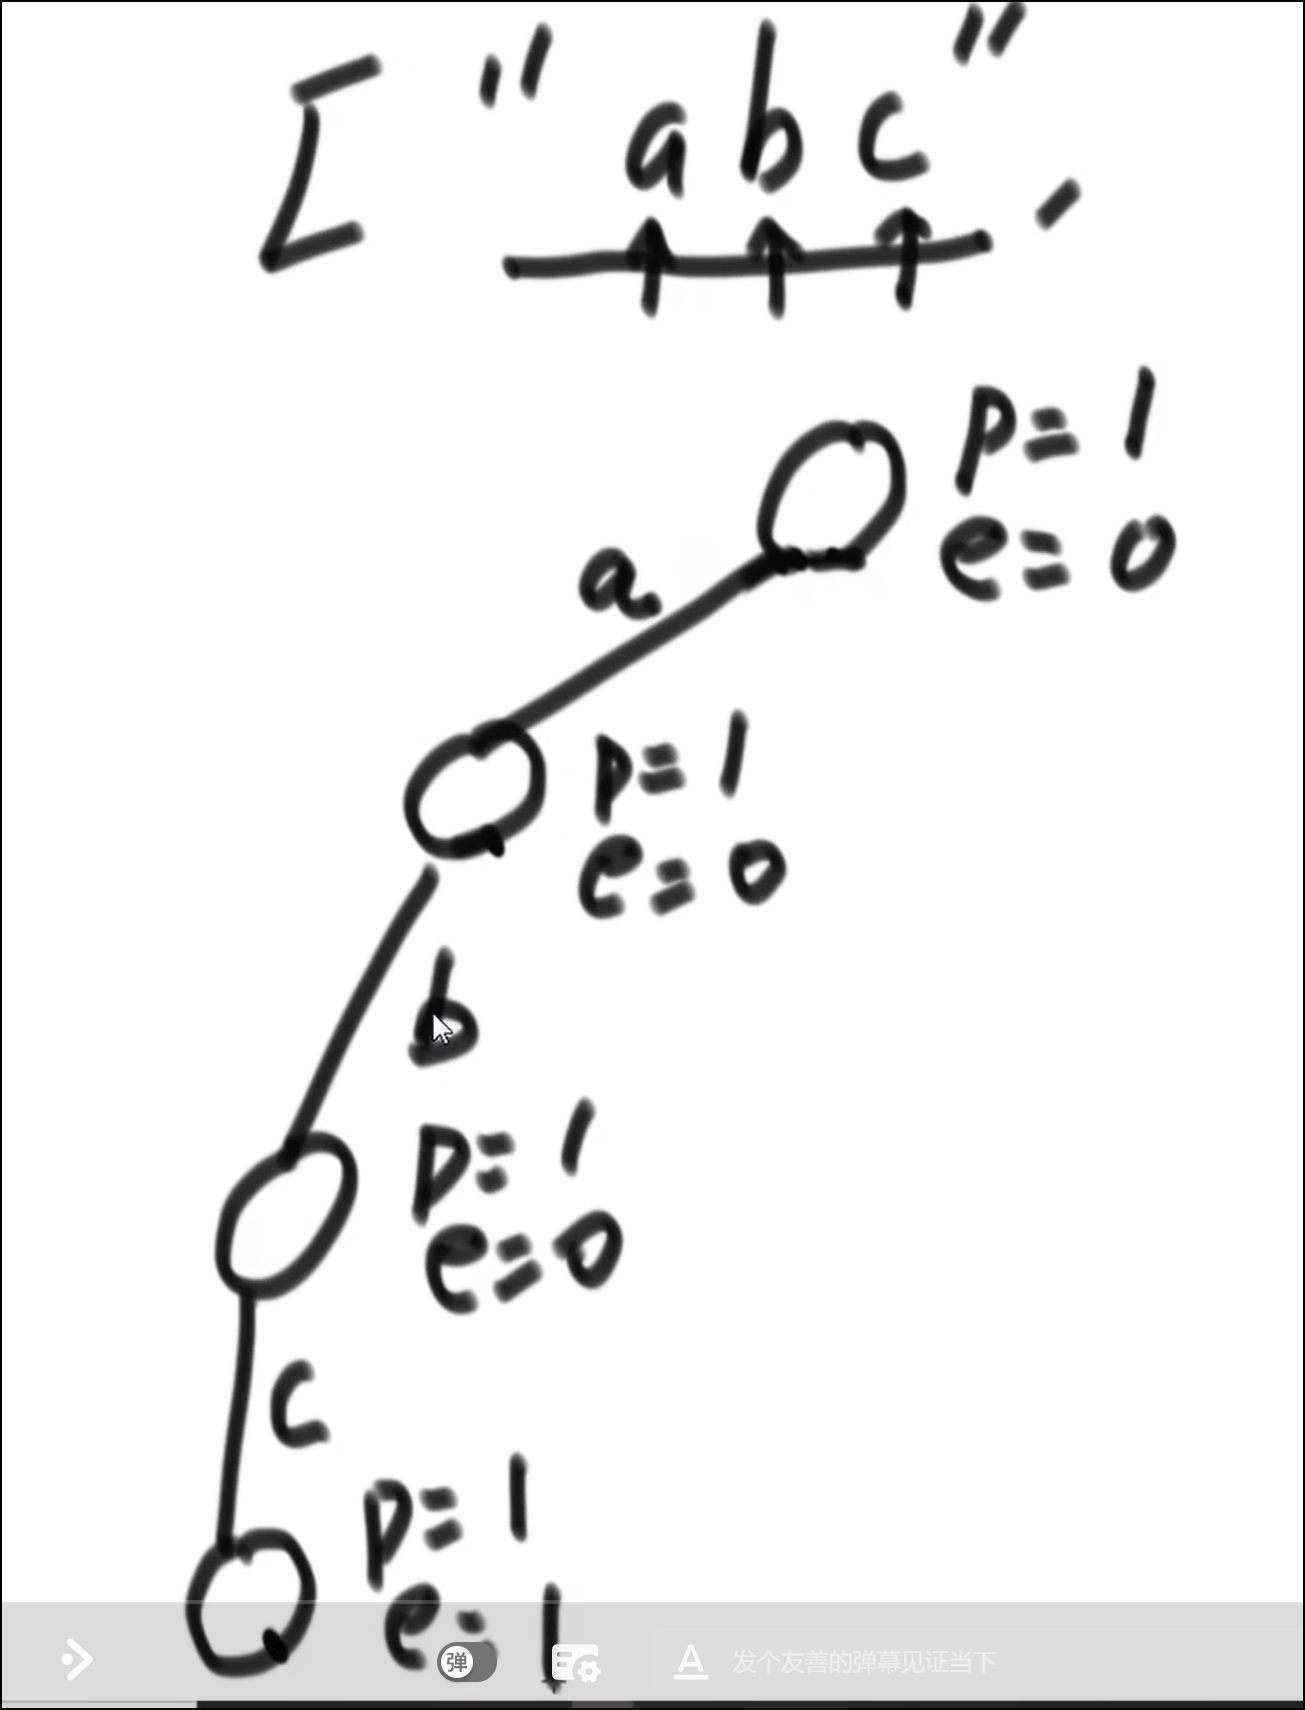 ["abc",
p=1
e=0
a
p=1
e=0
b
p=1
e=0
c
p=1
e=1
弹
A 发个友善的弹幕见证当下